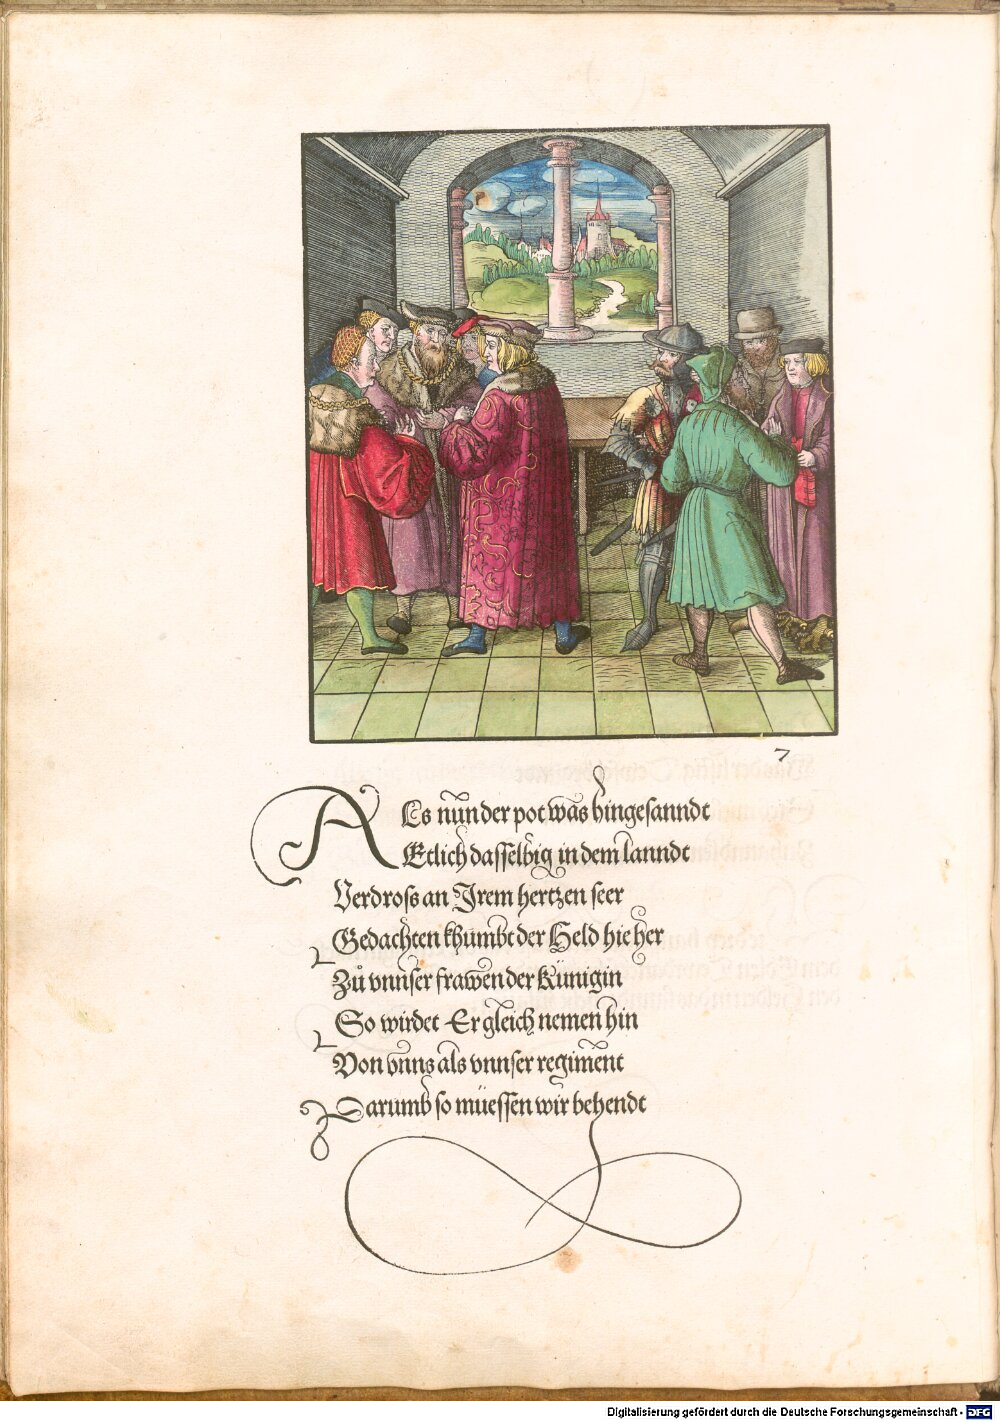 7
Als nŭn der pot was hingesanndt
Etlich dasselbig in dem lanndt
Verdross an Irem hertzen seer
Gedachten khumbt der Held hie her
Zů vnnser frawen der Künigin
So wirdet Er gleich nemen hin
Von vnns als vnnser regiment
Darumb so müessen wir behendt
Digitalisierung gefördert durch die Deutsche Forschungsgemeinschaft - DFG